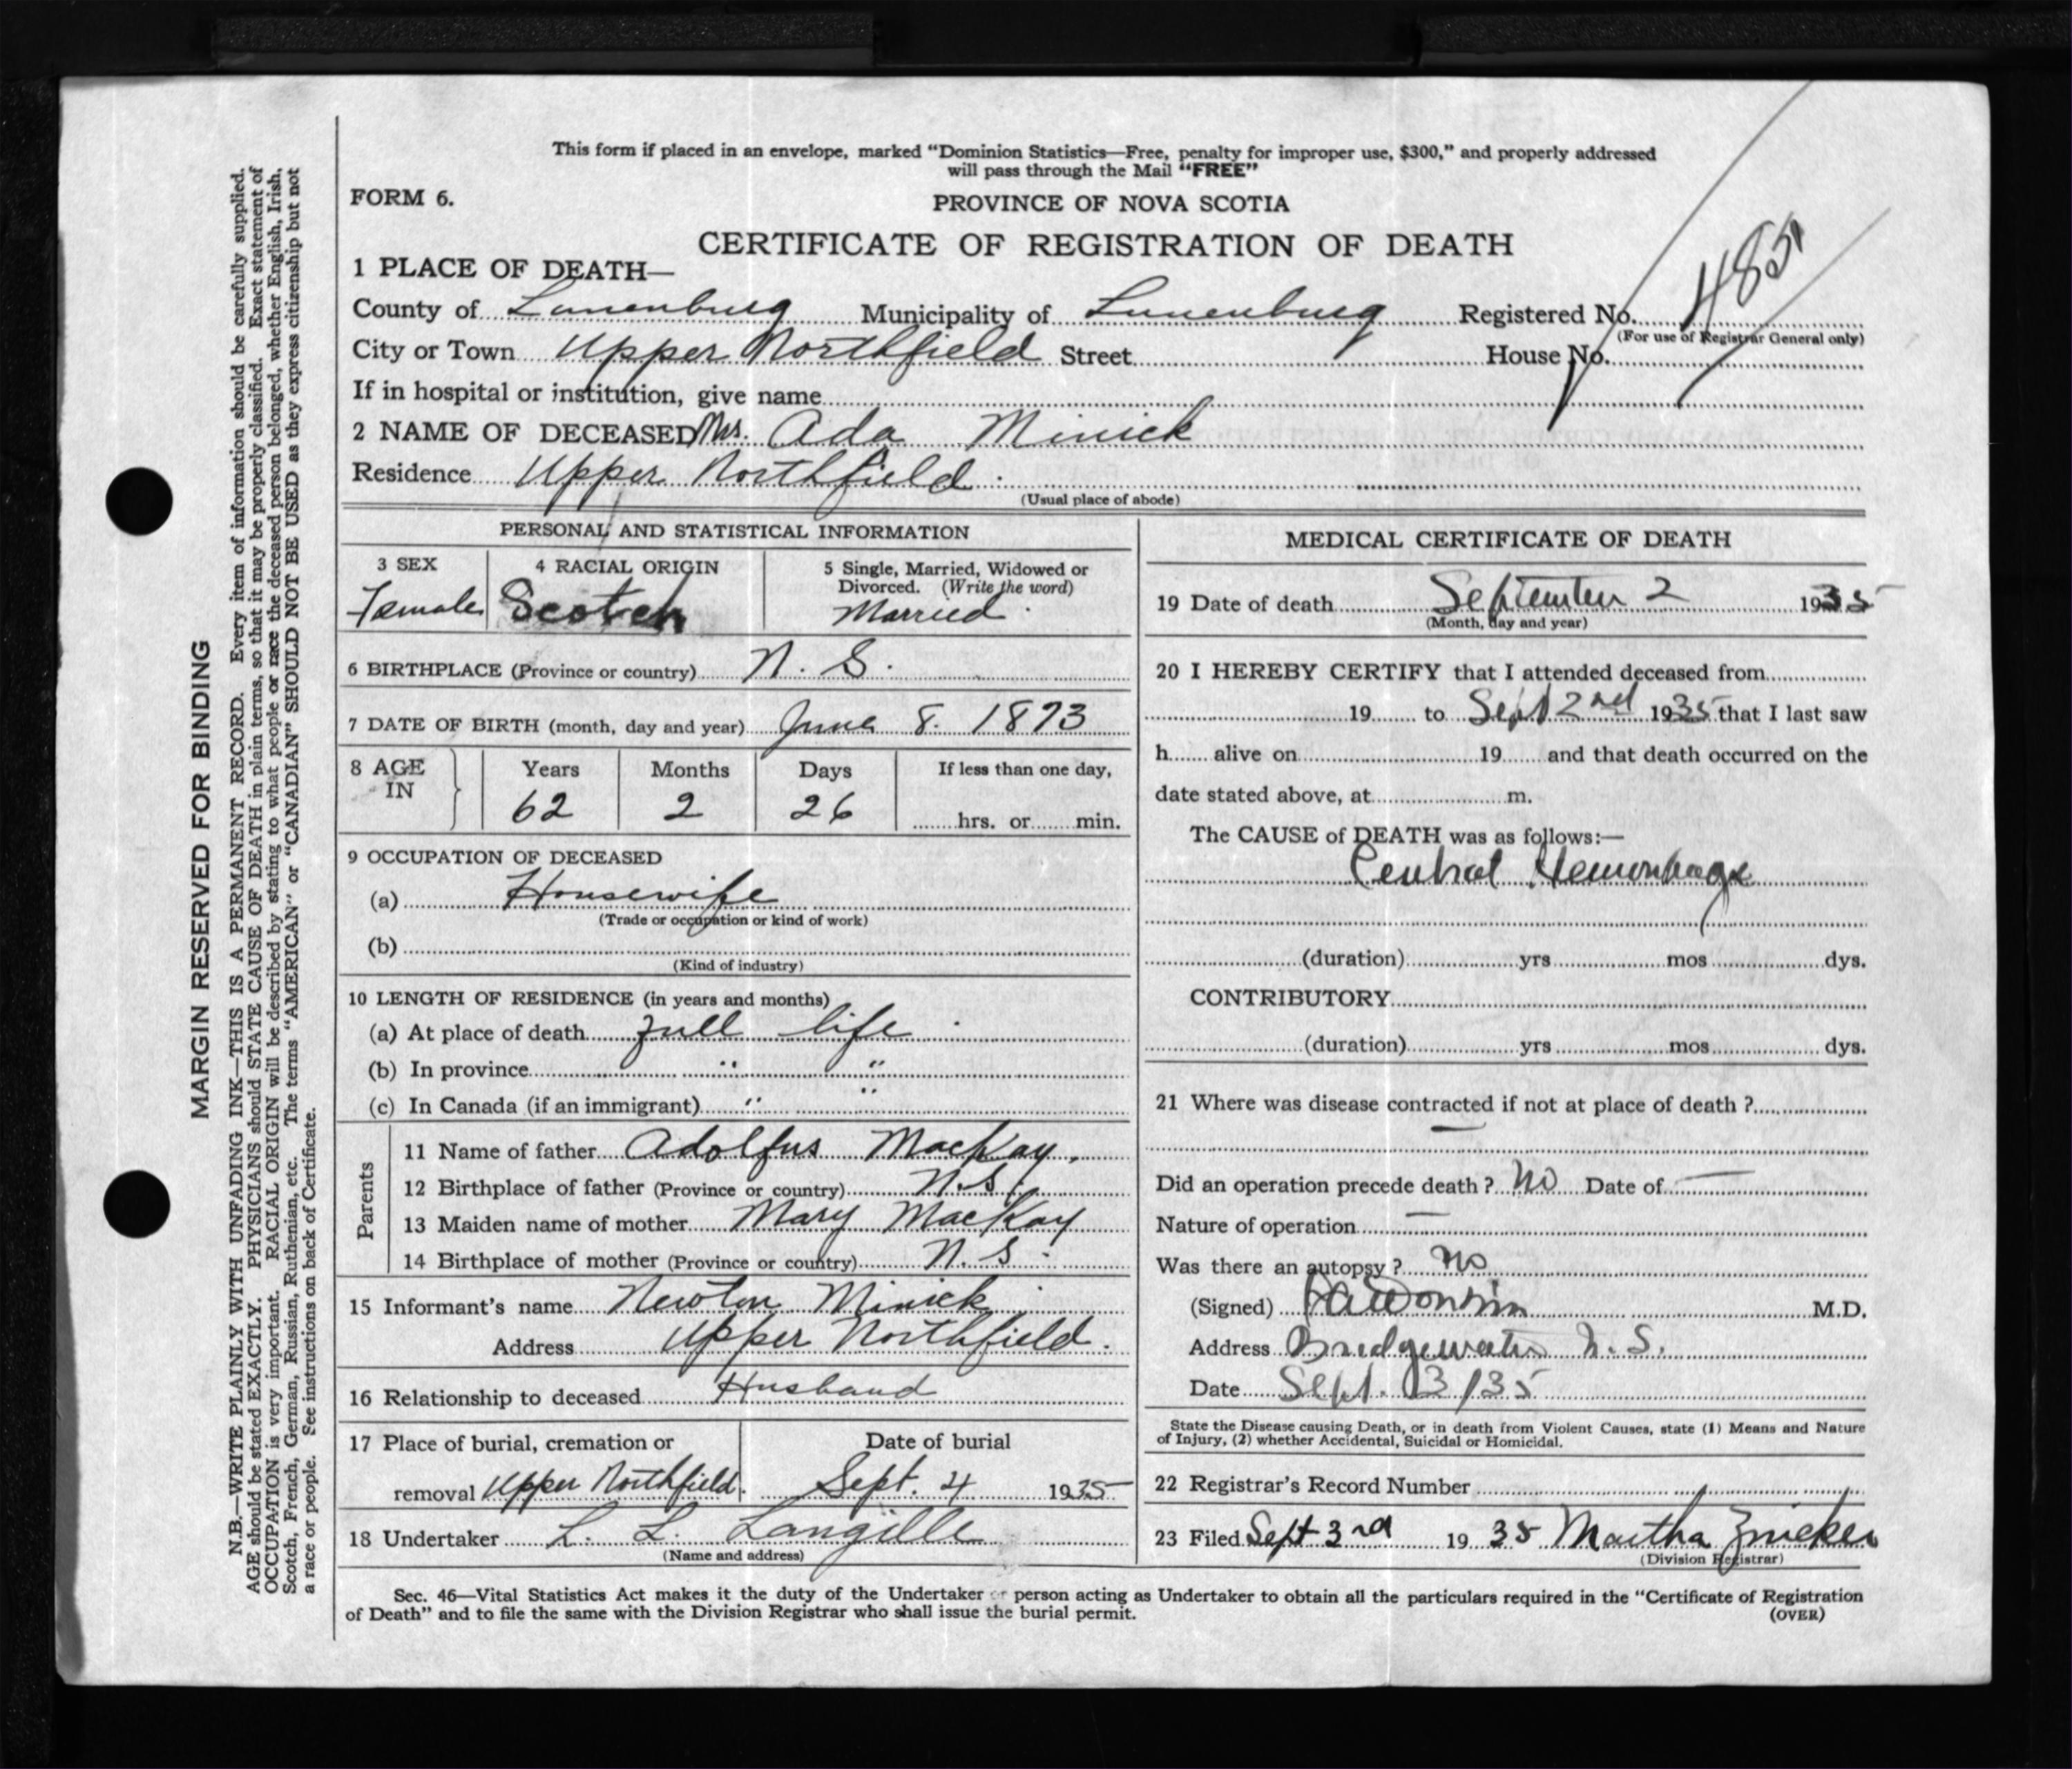 This form if placed in an envelope, marked "Dominion Statistics—Free, penalty for improper use, $300," and properly addressed
will pass through the Mail "FREE"
FORM 6.
PROVINCE OF NOVA SCOTIA
CERTIFICATE OF REGISTRATION OF DEATH
1 PLACE OF DEATH—
County of Lunenburg Municipality of Lunenburg Registered No.
(For use of Registrar General only)
City or Town Upper Northfield Street House No.
If in hospital or institution, give name
2 NAME OF DECEASED Mrs. Ada Minick
Residence Upper Northfield.
(Usual place of abode)
PERSONAL AND STATISTICAL INFORMATION
3 SEX
Female
4 RACIAL ORIGIN
Scotch
5 Single, Married, Widowed or
Divorced. (Write the word)
Married.
6 BIRTHPLACE (Province or country) N. S.
7 DATE OF BIRTH (month, day and year) June 8. 1873
8 AGE IN
Years Months Days If less than one day,
62 2 26 hrs. or min.
9 OCCUPATION OF DECEASED
(a) Housewife
(Trade or occupation or kind of work)
(b)
(Kind of industry)
10 LENGTH OF RESIDENCE (in years and months)
(a) At place of death full life.
(b) In province " "
(c) In Canada (if an immigrant) " "
Parents
11 Name of father Adolfus MacKay.
12 Birthplace of father (Province or country) N.S.
13 Maiden name of mother Mary MacKay
14 Birthplace of mother (Province or country) N. S.
15 Informant's name Newton Minick
Address Upper Northfield.
16 Relationship to deceased Husband
17 Place of burial, cremation or
removal Upper Northfield.
Date of burial
Sept. 4 1935
18 Undertaker L. L. Langille
(Name and address)
MEDICAL CERTIFICATE OF DEATH
19 Date of death September 2 1935
(Month, day and year)
20 I HEREBY CERTIFY that I attended deceased from
19 to Sept 2nd 1935 that I last saw
h alive on 19 and that death occurred on the
date stated above, at m.
The CAUSE of DEATH was as follows:—
Hemorrhage
(duration) yrs mos dys.
CONTRIBUTORY
(duration) yrs mos dys.
21 Where was disease contracted if not at place of death ?
—
Did an operation precede death ? No Date of —
Nature of operation —
Was there an autopsy ? no
(Signed) M.D.
Address Bridgewater N. S.
Date Sept. 3/35
State the Disease causing Death, or in death from Violent Causes, state (1) Means and Nature
of Injury, (2) whether Accidental, Suicidal or Homicidal.
22 Registrar's Record Number
23 Filed Sept 3rd 1935 Martha Zwicker
(Division Registrar)
Sec. 46—Vital Statistics Act makes it the duty of the Undertaker or person acting as Undertaker to obtain all the particulars required in the "Certificate of Registration
of Death" and to file the same with the Division Registrar who shall issue the burial permit. (OVER)
MARGIN RESERVED FOR BINDING
N.B.—WRITE PLAINLY WITH UNFADING INK—THIS IS A PERMANENT RECORD. Every item of information should be carefully supplied.
AGE should be stated EXACTLY. PHYSICIANS should STATE CAUSE OF DEATH in plain terms, so that it may be properly classified. Exact statement of
OCCUPATION is very important. RACIAL ORIGIN will be described by stating to what people or race the deceased person belonged, whether English, Irish,
Scotch, French, German, Russian, Ruthenian, etc. The terms "AMERICAN" or "CANADIAN" SHOULD NOT BE USED as they express citizenship but not
a race or people. See instructions on back of Certificate.